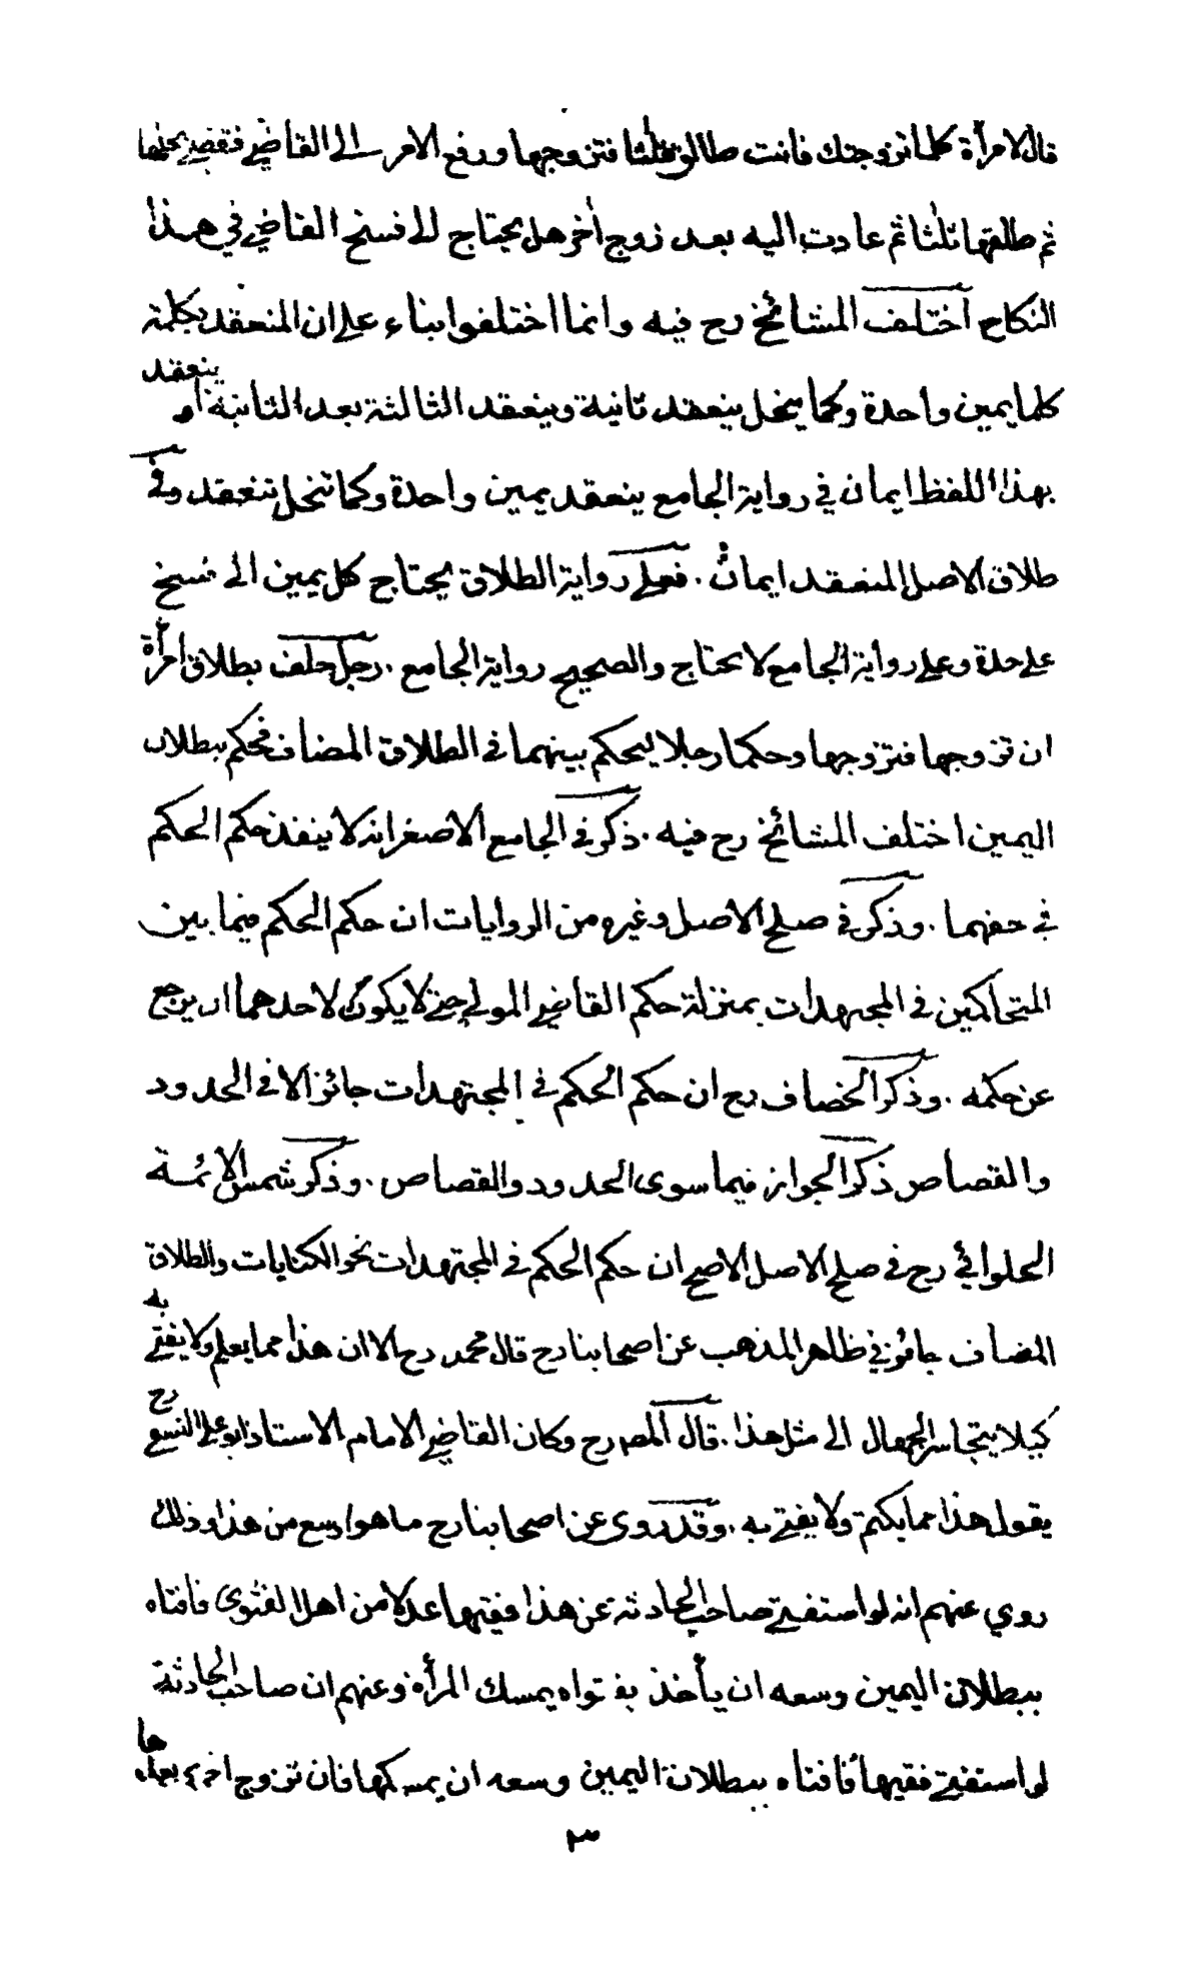 قال لامرأة كلما تزوجتك فانت طالق ثلثا فتزوجها ورفع الامر الى القاضي فقضى بحلها
ثم طلقها ثلثا ثم عادت اليه بعد زوج أخر هل يحتاج الى فسخ القاضي في هذا
النكاح اختلف المشائخ رح فيه وانما اختلفوا بناء على ان المنعقد بكلمة
كلما يمين واحدة وكما ينحل ينعقد ثانية وينعقد الثالثة بعد الثانية ام ينعقد
بهذا اللفظ ايمان في رواية الجامع ينعقد يمين واحدة وكما تنحل تنعقد وفي
طلاق الاصل المنعقد ايمان . فعلى رواية الطلاق يحتاج كل يمين الى فسخ
على حدة وعلى رواية الجامع لا يحتاج والصحيح رواية الجامع . رجل حلف بطلاق امرأة
ان تزوجها فتزوجها وحكما رجلا ليحكم بينهما في الطلاق المضاف فحكم ببطلان
اليمين اختلف المشائخ رح فيه . ذكر في الجامع الاصغر انه لا ينفذ حكم الحكم
في حقهما . وذكر في صلح الاصل وغيره من الروايات ان حكم الحكم فيما بين
المتحاكمين في المجتهدات بمنزلة حكم القاضي المولى حتى لا يكون لاحدهما ان يرجع
عن حكمه . وذكر الخصاف رح ان حكم الحكم في المجتهدات جائز الا في الحدود
والقصاص ذكر الجواز فيما سوى الحدود والقصاص . وذكر شمس الائمة
الحلوائي رح في صلح الاصل الاصح ان حكم الحكم في المجتهدات نحو الكنايات والطلاق
المضاف جائز في ظاهر المذهب عن اصحابنا رح قال محمد رح الا ان هذا مما يعلم ولا يفتى به
كيلا يتجاسر الجهال الى مثل هذا . قال المص رح وكان القاضي الامام الاستاذ ابو علي النسفي رح
يقول هذا مما يكتم ولا يفتى به . وقد روى عن اصحابنا رح ما هو اوسع من هذا وذلك
روي عنهم انه لو استفتى صاحب الحادثة عن هذا فقيها عدلا من اهل الفتوى فافتاه
ببطلان اليمين وسعه ان يأخذ بفتواه يمسك المرأة وعنهم ان صاحب الحادثة
لو استفتى فقيها فافتاه ببطلان اليمين وسعه ان يمسكها فان تزوج اخرى بعدها
٣